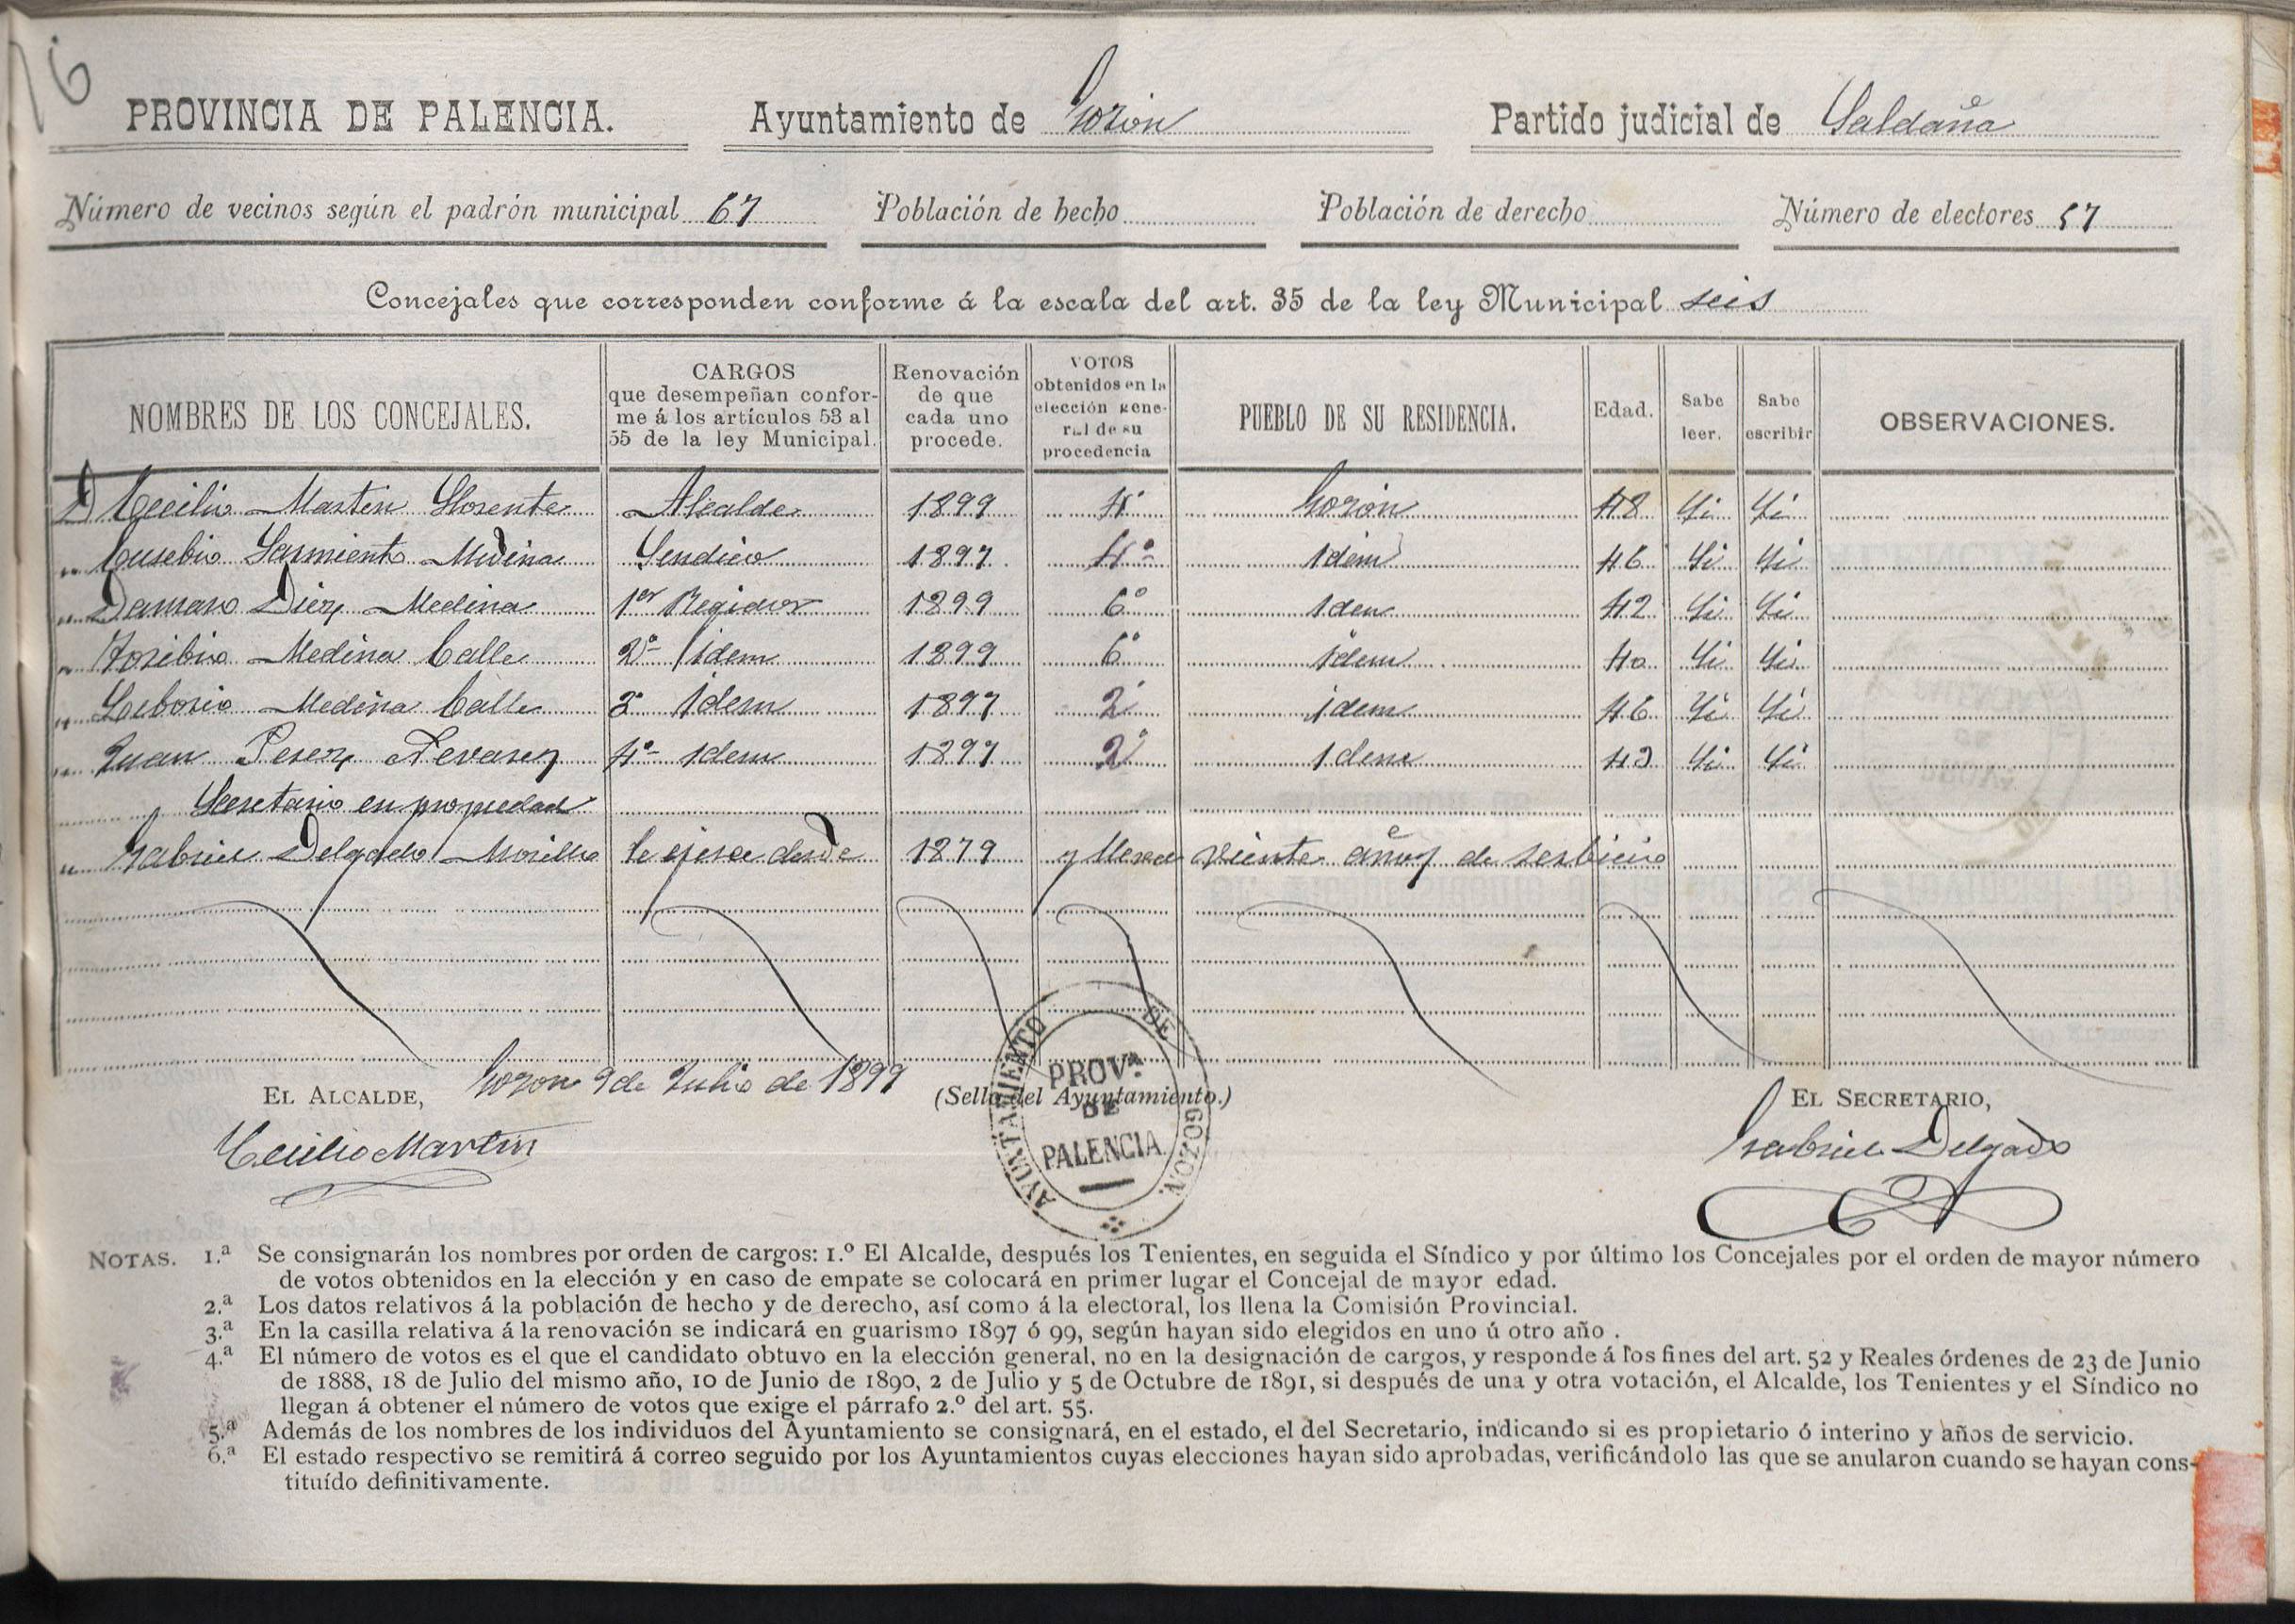 16
PROVINCIA DE PALENCIA. Ayuntamiento de Gozon Partido judicial de Saldaña
Número de vecinos según el padrón municipal 67 Población de hecho Población de derecho Número de electores 57
Concejales que corresponden conforme á la escala del art. 35 de la ley Municipal seis
NOMBRES DE LOS CONCEJALES. CARGOS que desempeñan confor-me á los artículos 53 al 55 de la ley Municipal. Renovación de que cada uno procede. VOTOS obtenidos en la elección gene-ral de su procedencia PUEBLO DE SU RESIDENCIA. Edad. Sabe leer. Sabe escribir OBSERVACIONES.
D Cecilio Martin Llorente Alcalde 1899 4º Gozón 48 Si Si
" Eusebio Sarmiento Medina Sendico 1897 4º idem 46 Si Si
" Damaso Diez Medina 1er Regidor 1899 6º iden 42 Si Si
" Toribio Medina Calle 2º idem 1899 6º idem 40 Si Si
" Liborio Medina Calle 3º idem 1897 2º idem 46 Si Si
" Juan Perez Nevarez 4º idem 1897 2º idem 43 Si Si
Secretario en propiedad
" Gabriel Delgado Morillo le ejerce desde 1879 y lleva viente años de serbicio
Gozon 9 de Julio de 1899
EL ALCALDE, (Sello del Ayuntamiento.) EL SECRETARIO,
Cecilio Martin Gabriel Delgado
AYUNTAMIENTO DE GOZON.
PROVª.
DE
PALENCIA.
NOTAS. 1.ª Se consignarán los nombres por orden de cargos: 1.º El Alcalde, después los Tenientes, en seguida el Síndico y por último los Concejales por el orden de mayor número
de votos obtenidos en la elección y en caso de empate se colocará en primer lugar el Concejal de mayor edad.
2.ª Los datos relativos á la población de hecho y de derecho, así como á la electoral, los llena la Comisión Provincial.
3.ª En la casilla relativa á la renovación se indicará en guarismo 1897 ó 99, según hayan sido elegidos en uno ú otro año .
4.ª El número de votos es el que el candidato obtuvo en la elección general, no en la designación de cargos, y responde á los fines del art. 52 y Reales órdenes de 23 de Junio
de 1888, 18 de Julio del mismo año, 10 de Junio de 1890, 2 de Julio y 5 de Octubre de 1891, si después de una y otra votación, el Alcalde, los Tenientes y el Síndico no
llegan á obtener el número de votos que exige el párrafo 2.º del art. 55.
5.ª Además de los nombres de los individuos del Ayuntamiento se consignará, en el estado, el del Secretario, indicando si es propietario ó interino y años de servicio.
6.ª El estado respectivo se remitirá á correo seguido por los Ayuntamientos cuyas elecciones hayan sido aprobadas, verificándolo las que se anularon cuando se hayan cons-
tituído definitivamente.